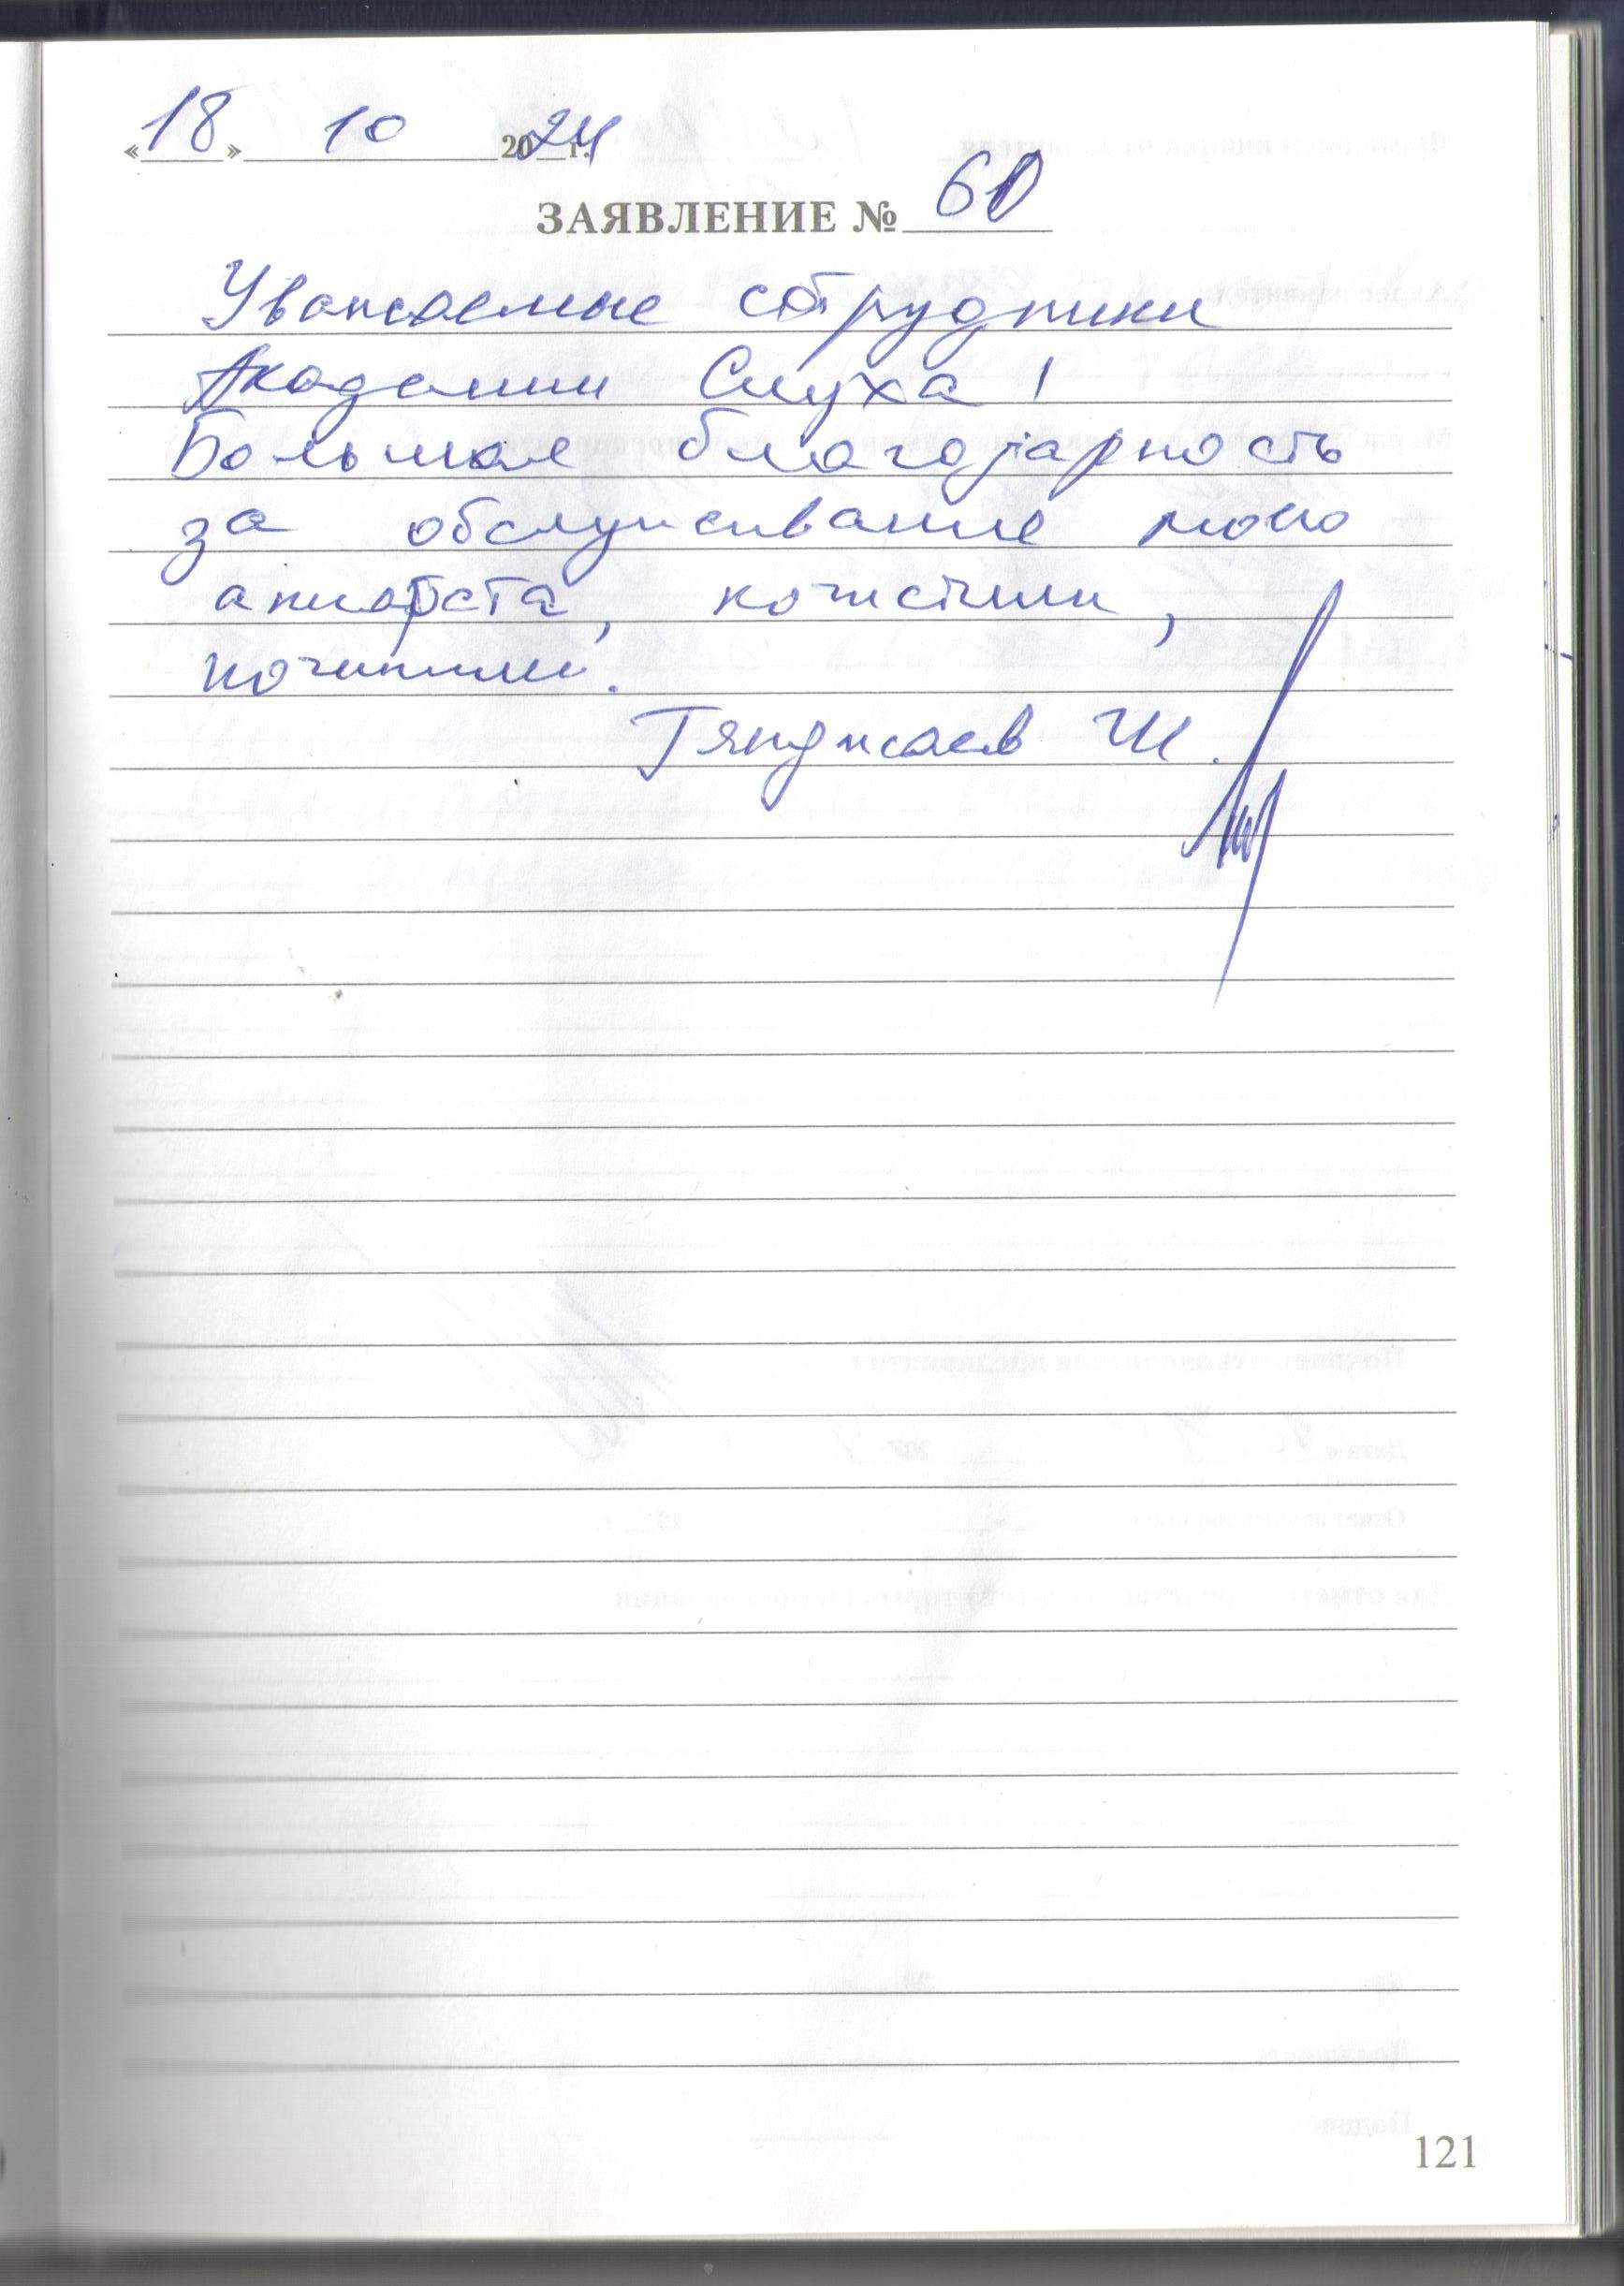 «18» 10 2024 г.
ЗАЯВЛЕНИЕ № 60
Уважаемые сотрудники
Академии Слуха!
Большая благодарность
за обслуживание моего
аппарата, почистили,
починили.
Гянджаев Ш.
121